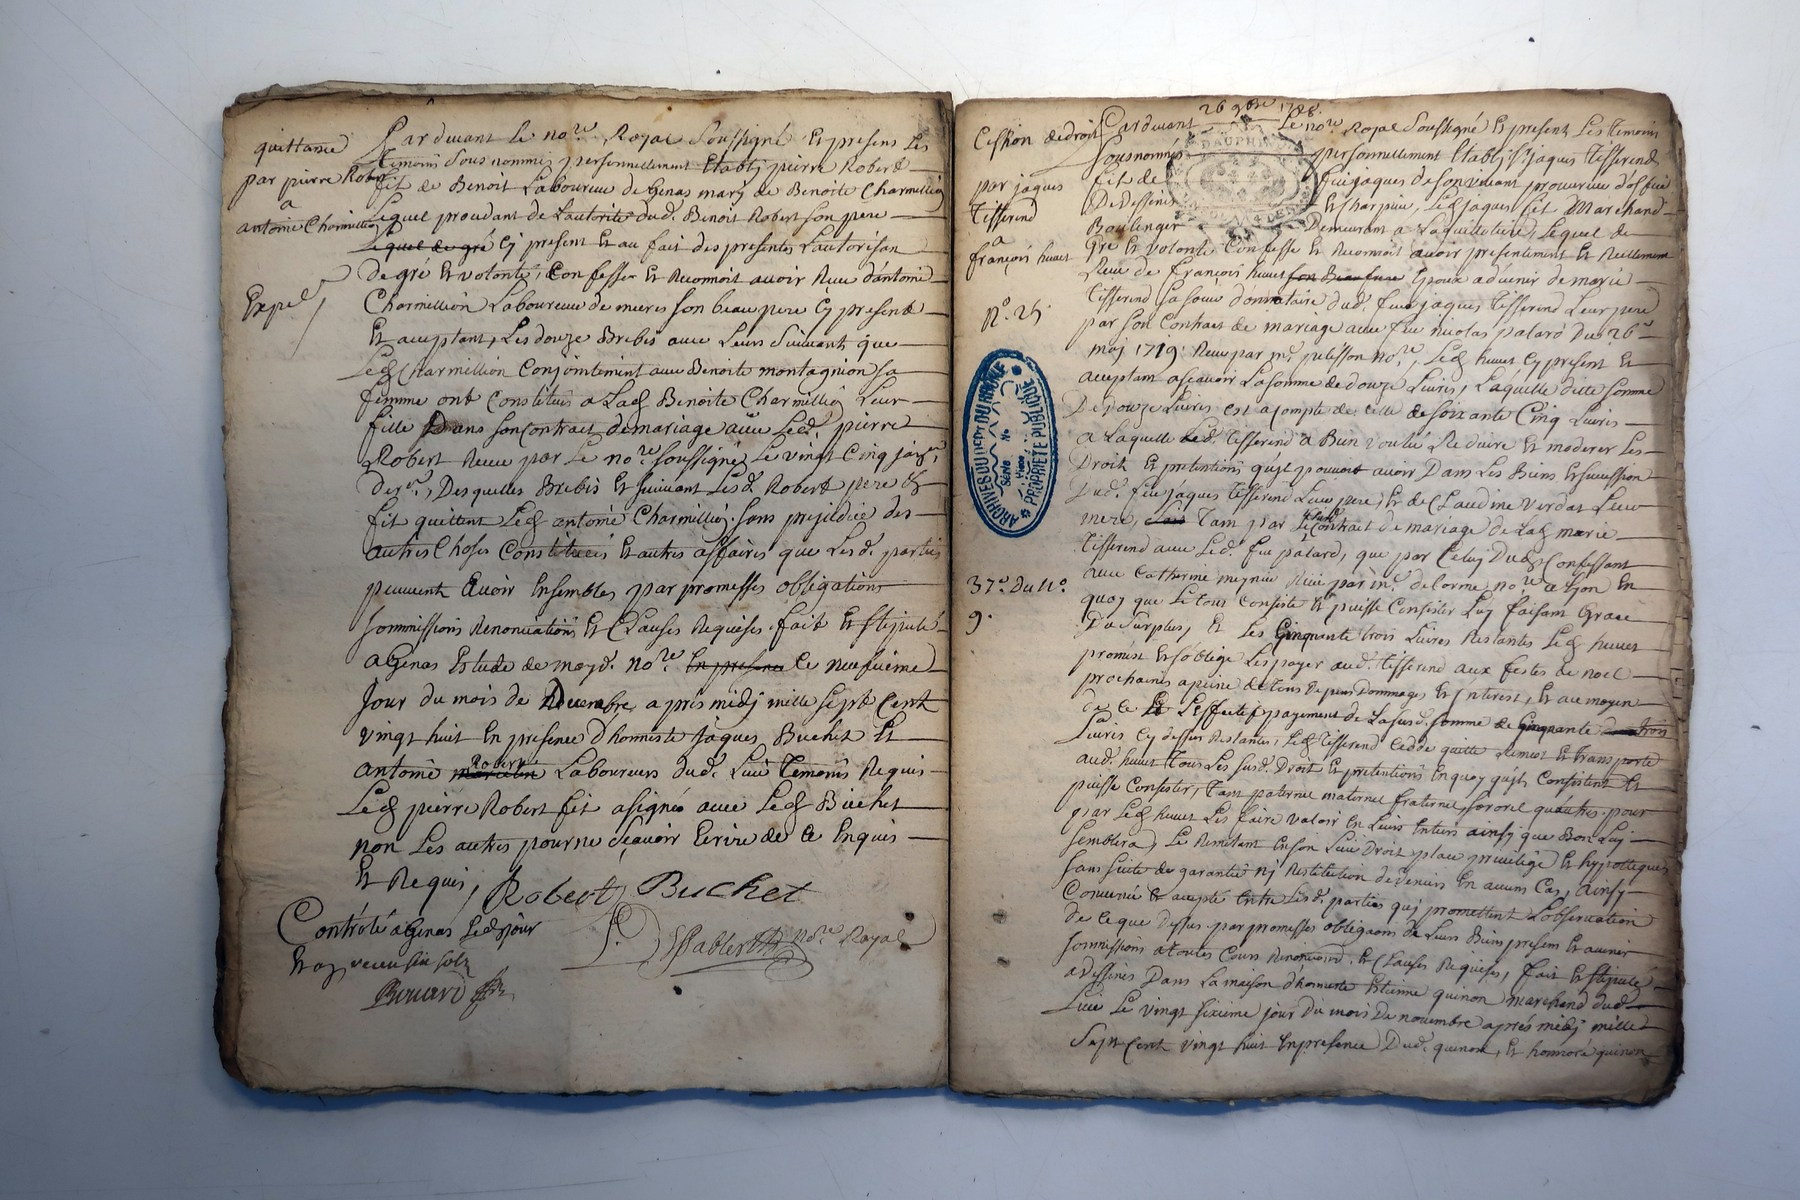 quittance
par pierre Robert
a
antoine Charmillion
Expel
Par devant le nore Royal soussigné et presens les
temoins sousnommés personnellement estably pierre Robert
fit de Benoit Laboureur de Genas mary de Benoite Charmillion
lequel procedant de l'autorité dud. Benoit Robert son pere
lequel de gré cy present et au fait des presentes l'autorisan
de gré et volonté, confesse et reconnoit avoir receu d'antoine
Charmillion Laboureur de mieres son beau pere cy present
et acceptant, les douze Brebis avec leurs suivants que
led Charmillion conjointement avec Benoite montagnion sa
femme ont constitués a lad Benoite Charmillion leur
fille Dans son contrat de mariage avec led. pierre
Robert receu par le nore soussigné le vingt cinq janer
der, Desquelles Brebis et suivant lesd Robert pere &
fit quittent led antoine Charmillion sans prejudice des
autres choses constituées et autres affaires que lesd. parties
peuvent avoir ensembles par promesses obligations
sommissions renonciations et clauses requises fait et stipulé
a Genas Estude de moyd. nore en presence ce neufvieme
jour du mois de Decembre apres midy mille sept cent
vingt huit en presence d'honneste jaques Buchet et
antoine Robert Laboureurs dud. Lieu temoins requis
led pierre Robert fit a signé avec led Buchet
non les autres pour ne sçavoir ecrire de ce enquis
et requis, Robert Buchet
Controlé a Genas led jour
et an receu six sols
Nore Royal
26 9bre 1728.
Cession de droit
par jaques
Tisserend
a
françois huvet
No. 25
37e. Du No.
9.
Pardevant le nore Royal soussigné et present les temoins
sousnommés personnellement estably sr. jaques Tisserend
fit de feu jaques de son vivant procureur d'office
De Dessenes et Charpieu, led jaques fit Marchand
Boulanger Demeurant a Laguillotiere, lequel de
gré et volonté, confesse et reconnoit avoir presentement et reellement
receu de françois huvet son Beaufrere Epoux advenir de marie
tisserend sa soeur donnataire dud. feu jaques tisserend leur pere
par son contract de mariage avec feu nicolas palard du 26e
may 1719. receu par me. nore, led huvet cy present et
acceptant asçavoir la somme de douze Livres, laquelle ditte somme
De Douze Livres est a compte de celle de soixante cinq Livres
a laquelle led. Tisserend a Bien voulu reduire et moderer les
Droits et pretentions qu'jl pouvoit avoir Dans les Biens et succession
Dud. feu jaques Tisserend leur pere, et de Claudine verdat leur
mere, Tant par le contract de mariage de lad marie
tisserend avec led. feu palard, que par celuy dud confessant
avec catherine receu par me. delorme nore a Lyon en
quoy que le tout consiste et puisse consister luy faisant grace
Du surplus, et les cinquante trois Livres restantes led huvet
promest et s'oblige les payer aud. tisserend aux festes de noel
prochaines a peine de tous depens Dommages et jnterest, et au moyen
de ce et l'effectif payement de la susd. somme de cinquante trois
Livres cy dessus restantes, led tisserend cedde quitte remet et transporte
aud. huvet tous les susd. Droit et pretentions en quoy qu'jls consistent et
puisse consister, tant paternel maternel fraternel, sororel qu'autres. pour
par led huvet les faire valoir en leurs entiers ainsy que Bon luy
semblera, le remettant en son lieu Droit place privilege et hypotteques
sans suite de garantie ny restitution de deniers en aucuns cas, ainsy
convenu et accepté entre lesd. parties quj promettent l'observation
de ce que dessus par promesses obligaons de leurs Biens presens et avenir
sommissions a toutes cours renonciaons et clauses requises, fait et stipulé
a Dessines Dans la maison d'honneste Estienne quinon marchand dud
Lieu le vingt sixieme jour du mois de novembre aprés midy mille
Sept cent vingt huit en presence Dud. quinon, et honnoré quinon
DAUPHINÉ
ARCHIVES DU DEPT DU RHONE
Série No
PROPRIÉTÉ PUBLIQUE